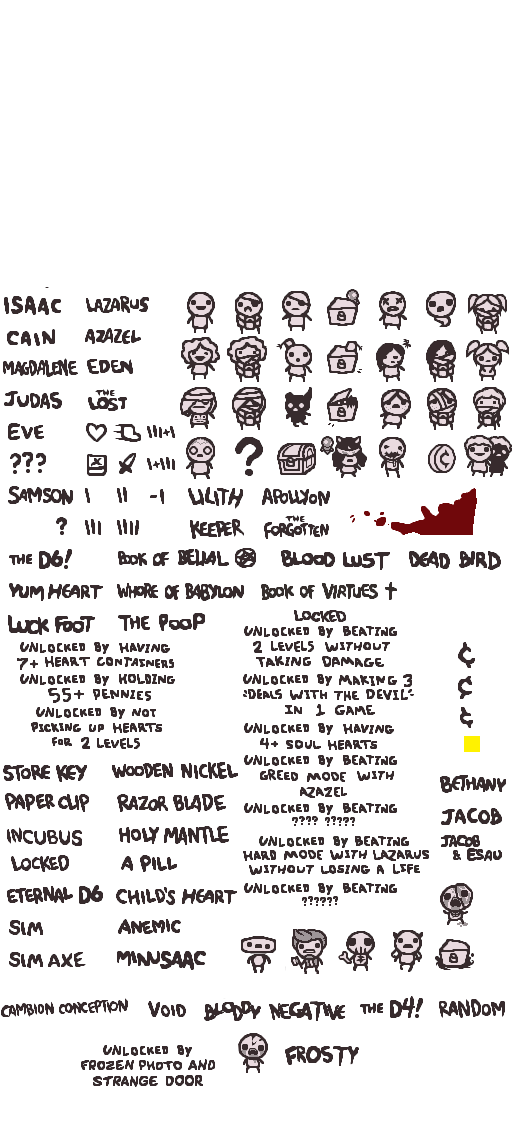 ISAAC LAZARUS
CAIN AZAZEL
MAGDALENE EDEN
JUDAS THE LOST
EVE
???
?
SAMSON I II -1 LILITH APOLLYON
? III IIII KEEPER THE FORGOTTEN
THE D6! BOOK OF BELIAL BLOOD LUST DEAD BIRD
YUM HEART WHORE OF BABYLON BOOK OF VIRTUES
LUCK FOOT THE POOP
UNLOCKED BY HAVING
7+ HEART CONTAINERS
UNLOCKED BY HOLDING
55+ PENNIES
UNLOCKED BY NOT
PICKING UP HEARTS
FOR 2 LEVELS
LOCKED
UNLOCKED BY BEATING
2 LEVELS WITHOUT
TAKING DAMAGE
UNLOCKED BY MAKING 3
"DEALS WITH THE DEVIL"
IN 1 GAME
UNLOCKED BY HAVING
4+ SOUL HEARTS
UNLOCKED BY BEATING
GREED MODE WITH
AZAZEL
UNLOCKED BY BEATING
???? ?????
UNLOCKED BY BEATING
HARD MODE WITH LAZARUS
WITHOUT LOSING A LIFE
UNLOCKED BY BEATING
??????
¢
¢
¢
STORE KEY WOODEN NICKEL
PAPER CLIP RAZOR BLADE
INCUBUS HOLY MANTLE
LOCKED A PILL
ETERNAL D6 CHILD'S HEART
SIM ANEMIC
SIM AXE MINUSAAC
BETHANY
JACOB
JACOB
& ESAU
CAMBION CONCEPTION VOID BLOODY NEGATIVE THE D4! RANDOM
UNLOCKED BY
FROZEN PHOTO AND
STRANGE DOOR
FROSTY